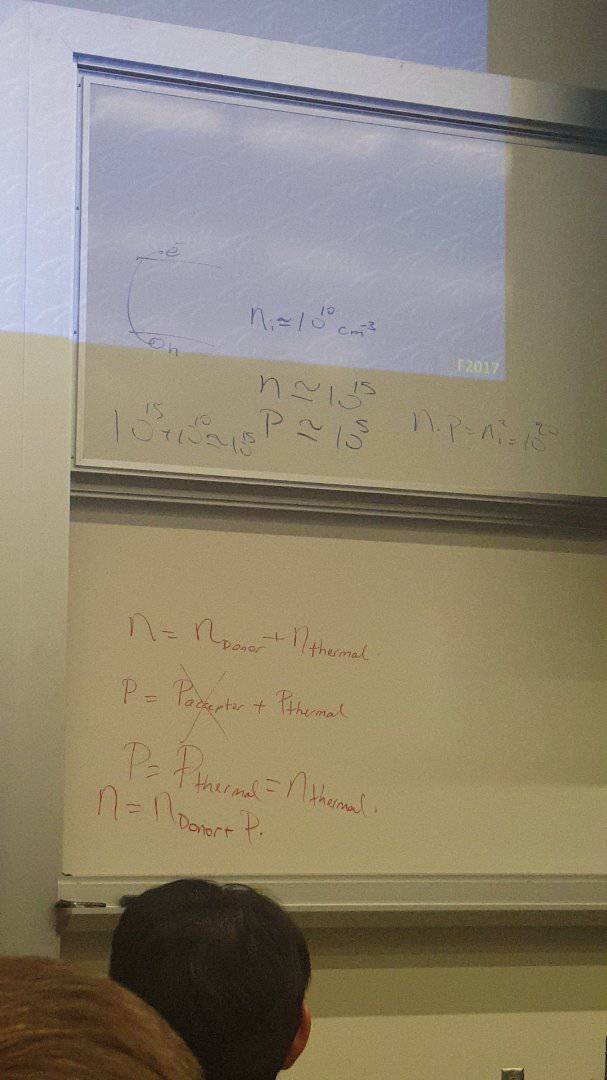 e⁻
nᵢ ≃ 10¹⁰ cm⁻³
h
F2017
n ≃ 10¹⁵
10¹⁵ + 10¹⁰ ≃ 10¹⁵ P ≃ 10⁵ n.p = nᵢ² = 10²⁰
n = n_Donor + n_thermal.
P = P_acceptor + P_thermal
P = P_thermal = n_thermal.
n = n_Donor + P.